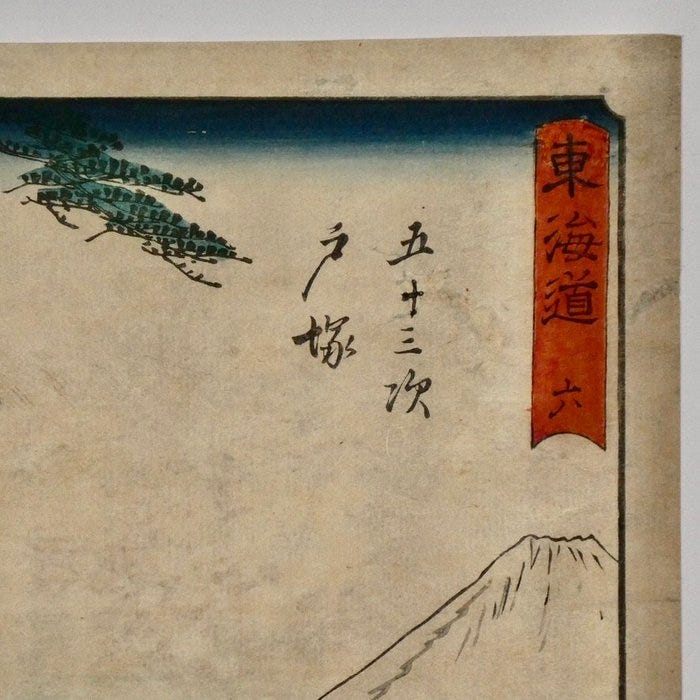 東海道 六
五十三次
戸塚